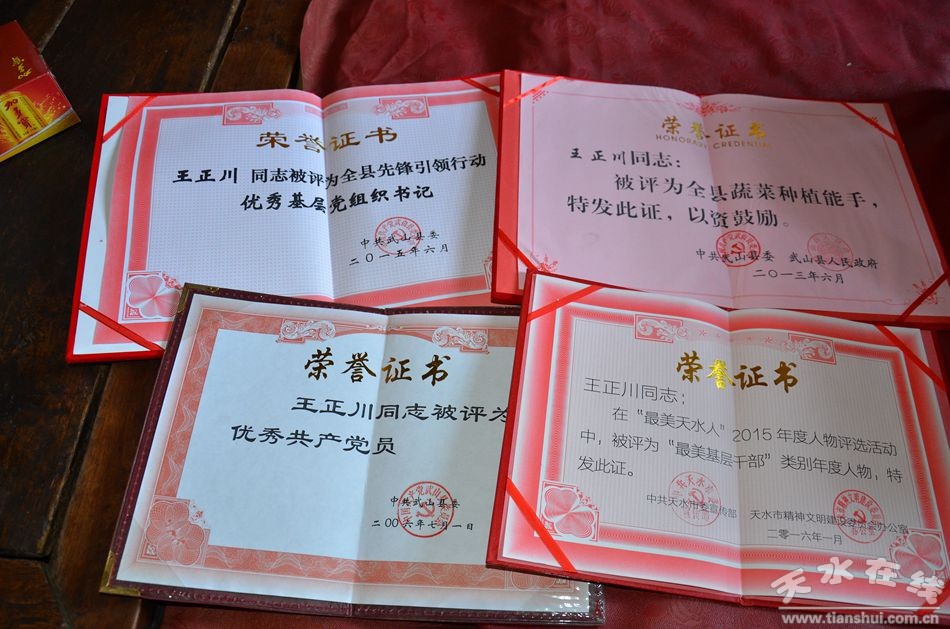 荣誉证书
王正川 同志被评为全县先锋引领行动
优秀基层党组织书记
中共武山县委
二〇一五年六月
荣誉证书
HONORARY CREDENTIAL
王正川同志：
被评为全县蔬菜种植能手，
特发此证，以资鼓励。
中共武山县委 武山县人民政府
二〇一三年六月
荣誉证书
王正川同志被评为
优秀共产党员
中共武山县委
二00六年七月一日
荣誉证书
王正川同志：
在“最美天水人”2015年度人物评选活动
中，被评为“最美基层干部”类别年度人物，特
发此证。
中共天水市委宣传部 天水市精神文明建设委员会办公室
二〇一六年一月
天水在线
www.tianshui.com.cn